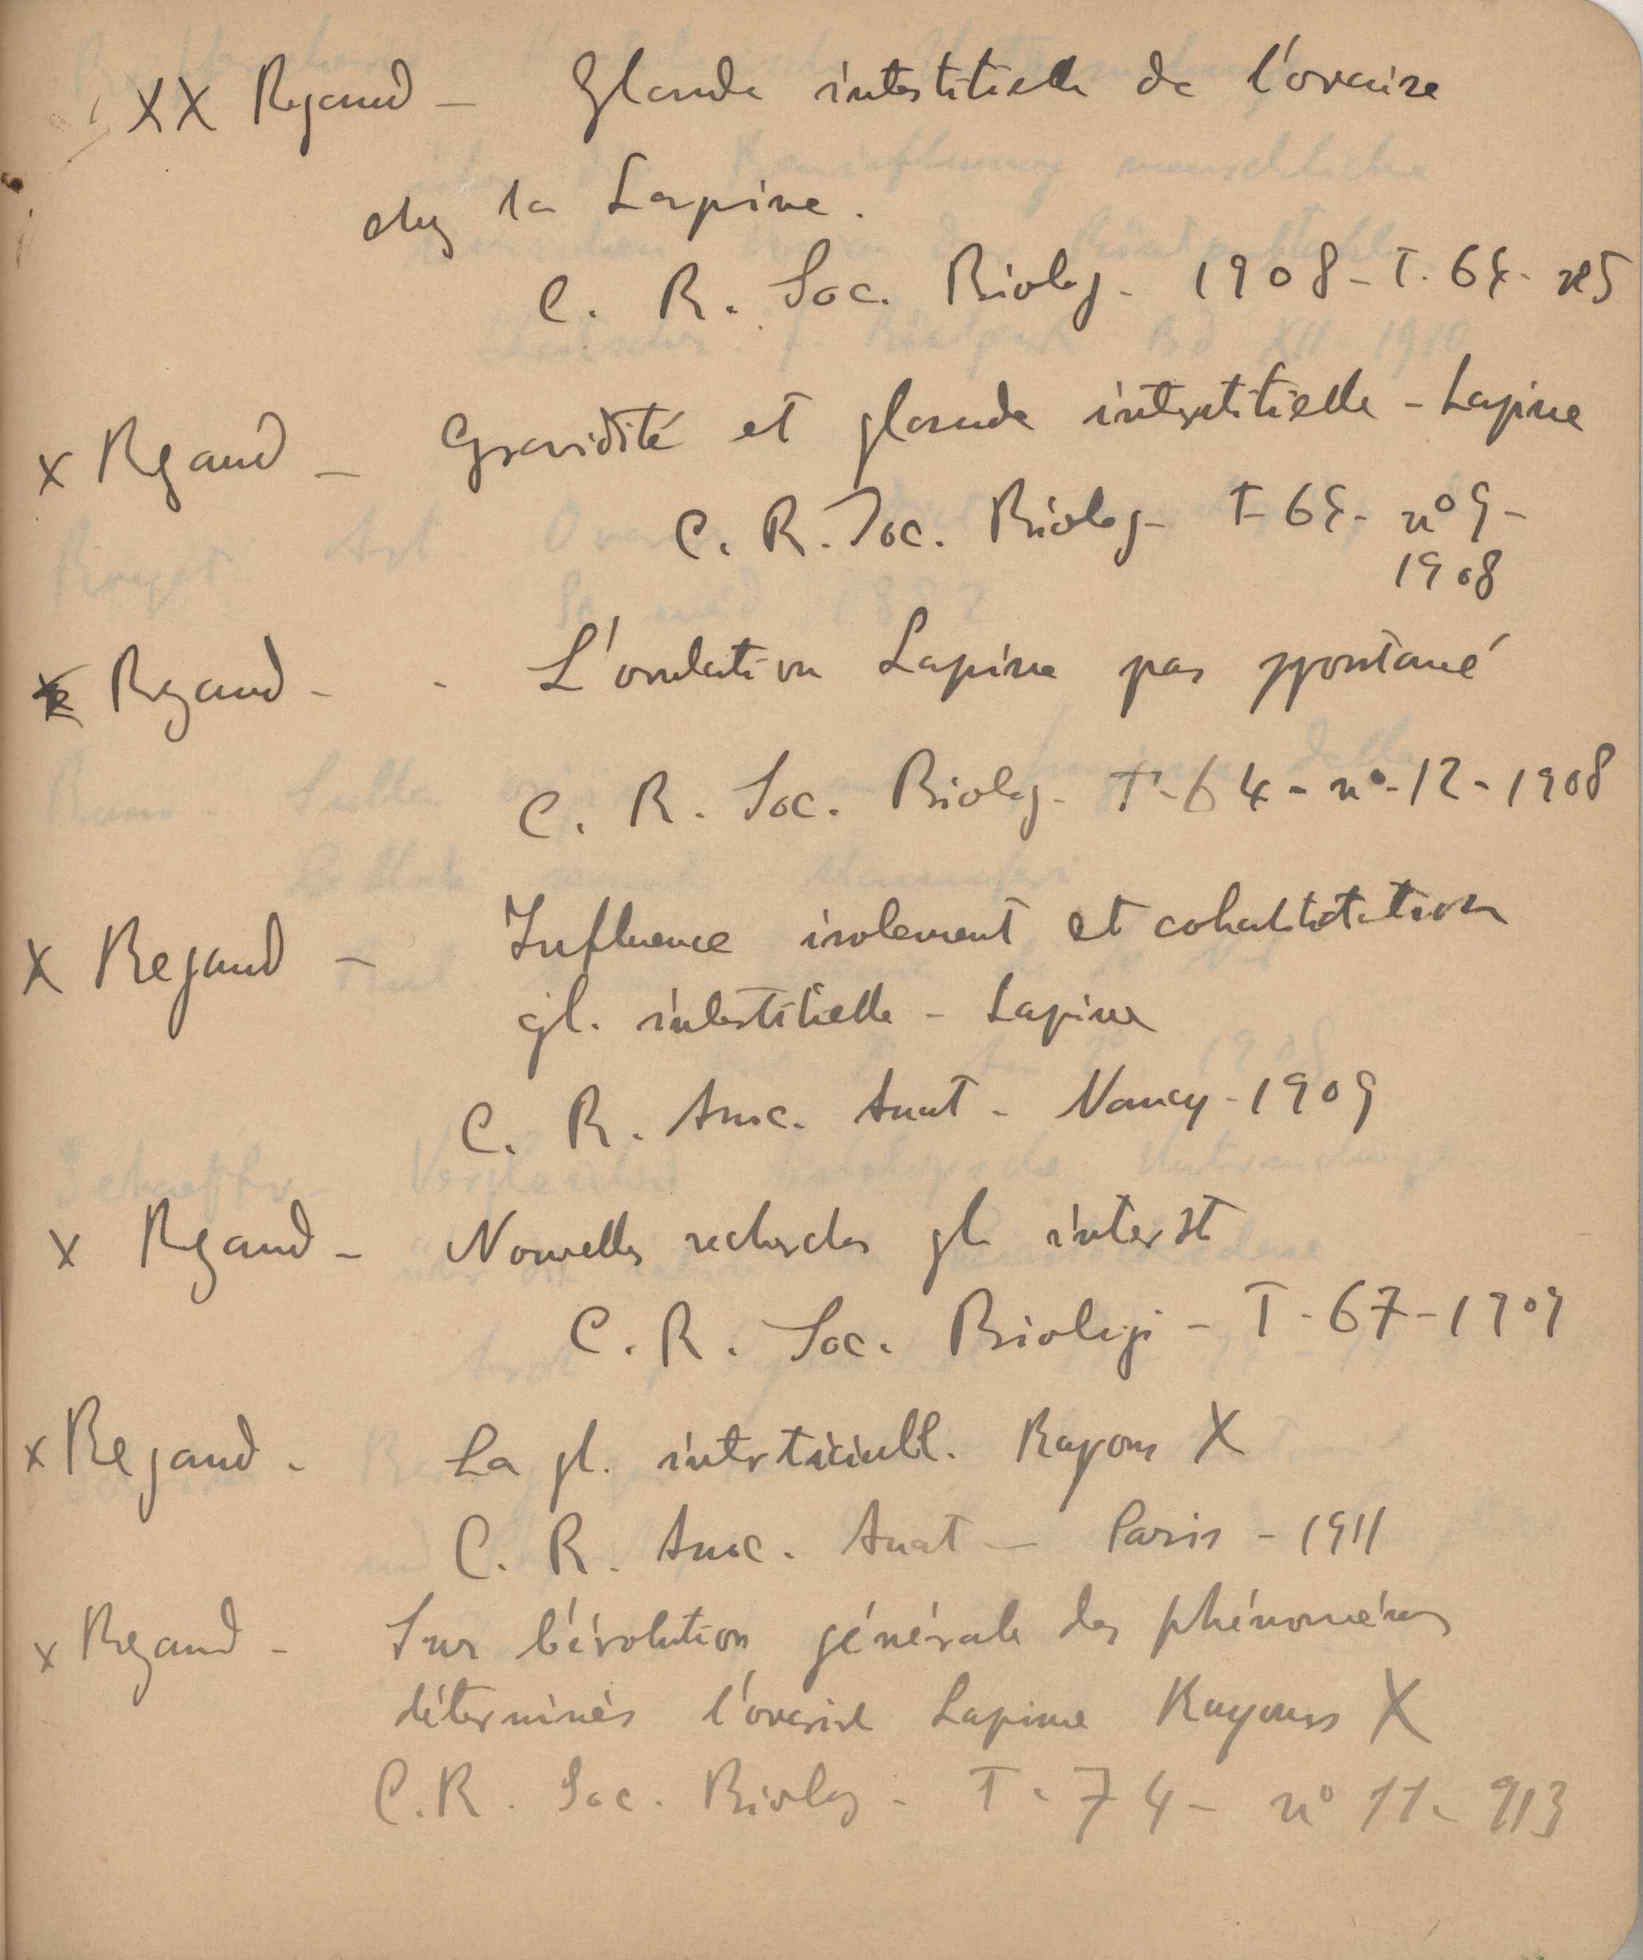 XX Regaud - Glande interstitielle de l'ovaire
chez la Lapine.
C. R. Soc. Biolog - 1908 - T. 64 - nº5
x Regaud - Gravidité et glande interstitielle - Lapine
C. R. Soc. Biolog - T - 64 - nº 9 -
1908
x Regaud - - L'ovulation Lapine pas spontané
C. R. Soc. Biolog - T - 64 - nº - 12 - 1908
x Regaud - Influence isolement et cohabitation
gl. interstitielle - Lapine
C. R. Assoc. Anat - Nancy - 1909
x Regaud - Nouvelles recherches gl interst
C. R. Soc. Biologi - T - 67 - 1909
x Regaud - La gl. Rayons X
C. R. Assoc. Anat - Paris - 1911
x Regaud - Sur l'évolution générale des phénomènes
déterminés l'ovaire Lapine Rayons X
C. R. Soc. Biolog - T - 74 - nº 11 - 913